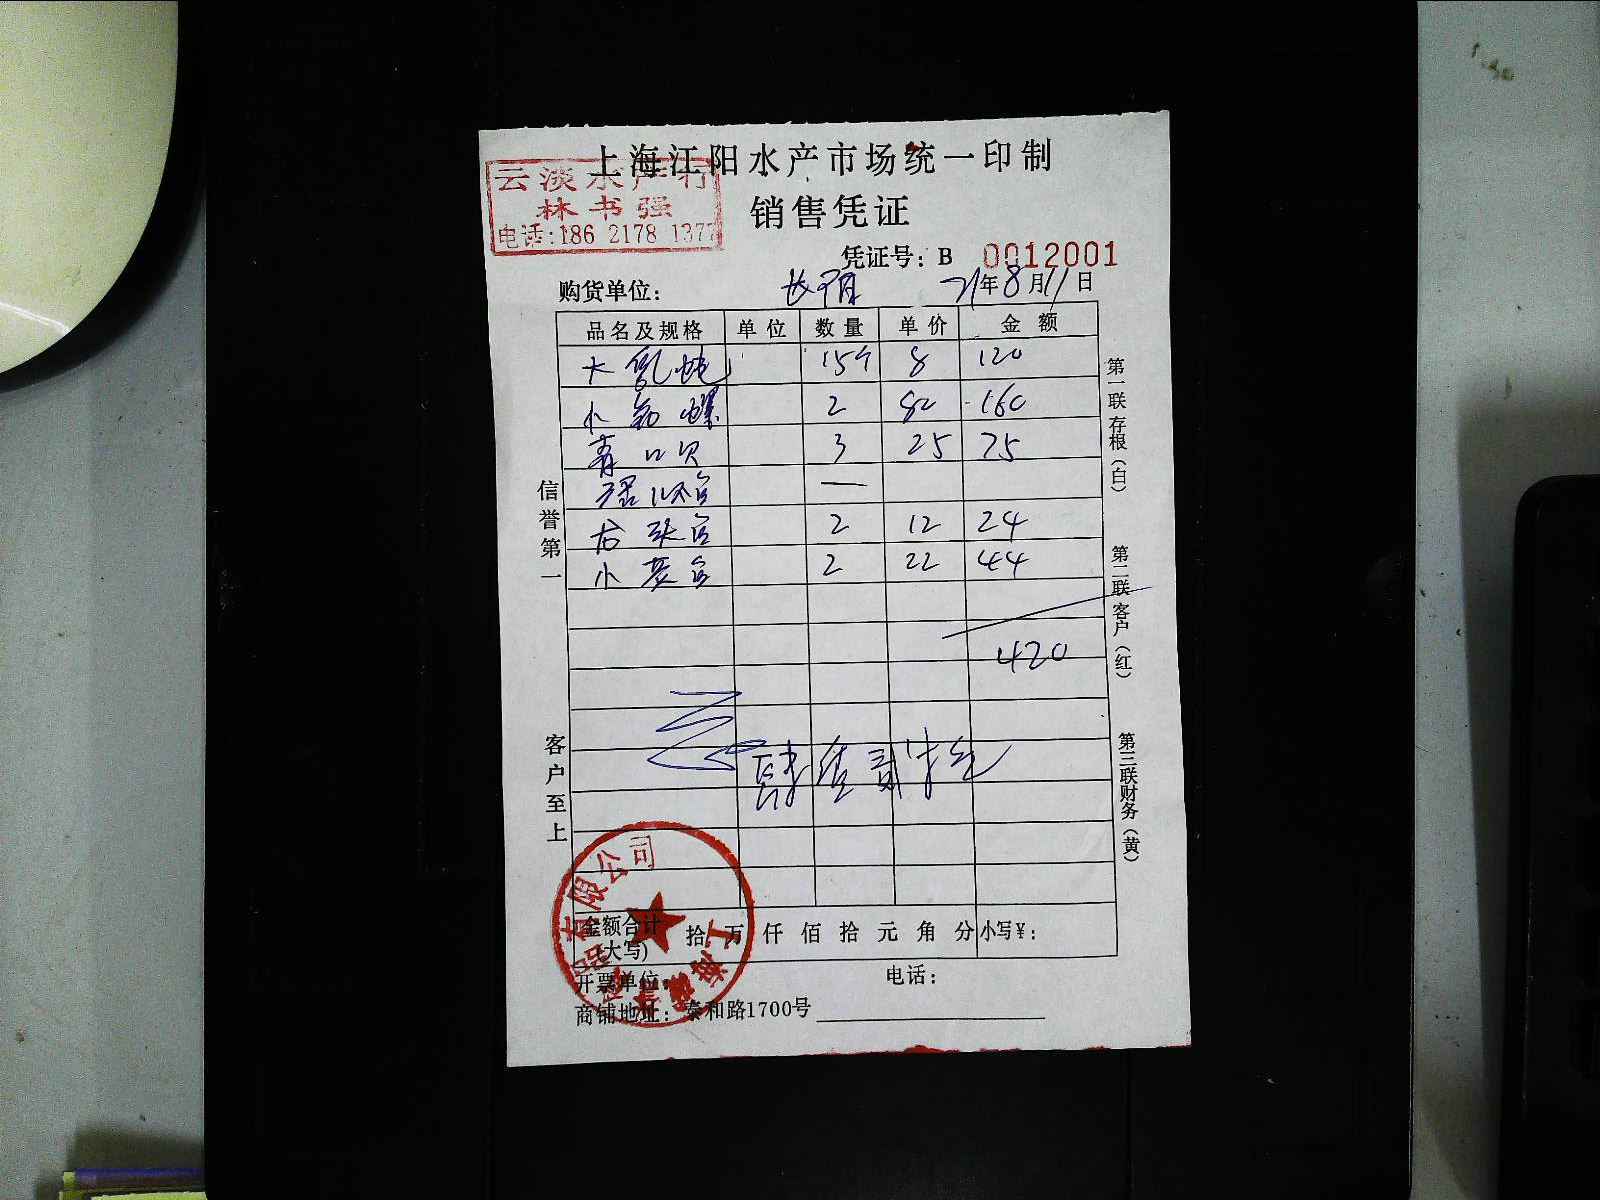 上海江阳水产市场统一印制
云淡水产行
林书强
电话:186 2178 1377
销售凭证
凭证号: B 0012001
购货单位: 长阳 21年8月11日
品名及规格 单位 数量 单价 金额
大 15个 8 120
小 螺 2 80 160
青口贝 3 25 75
—
2 12 24
小 2 22 44
420
肆佰贰拾元
信誉第一
客户至上
第一联存根(白)
第二联客户(红)
第三联财务(黄)
金额合计(大写) 拾 万 仟 佰 拾 元 角 分 小写¥:
开票单位: 电话:
商铺地址: 泰和路1700号
上海 品有限公司